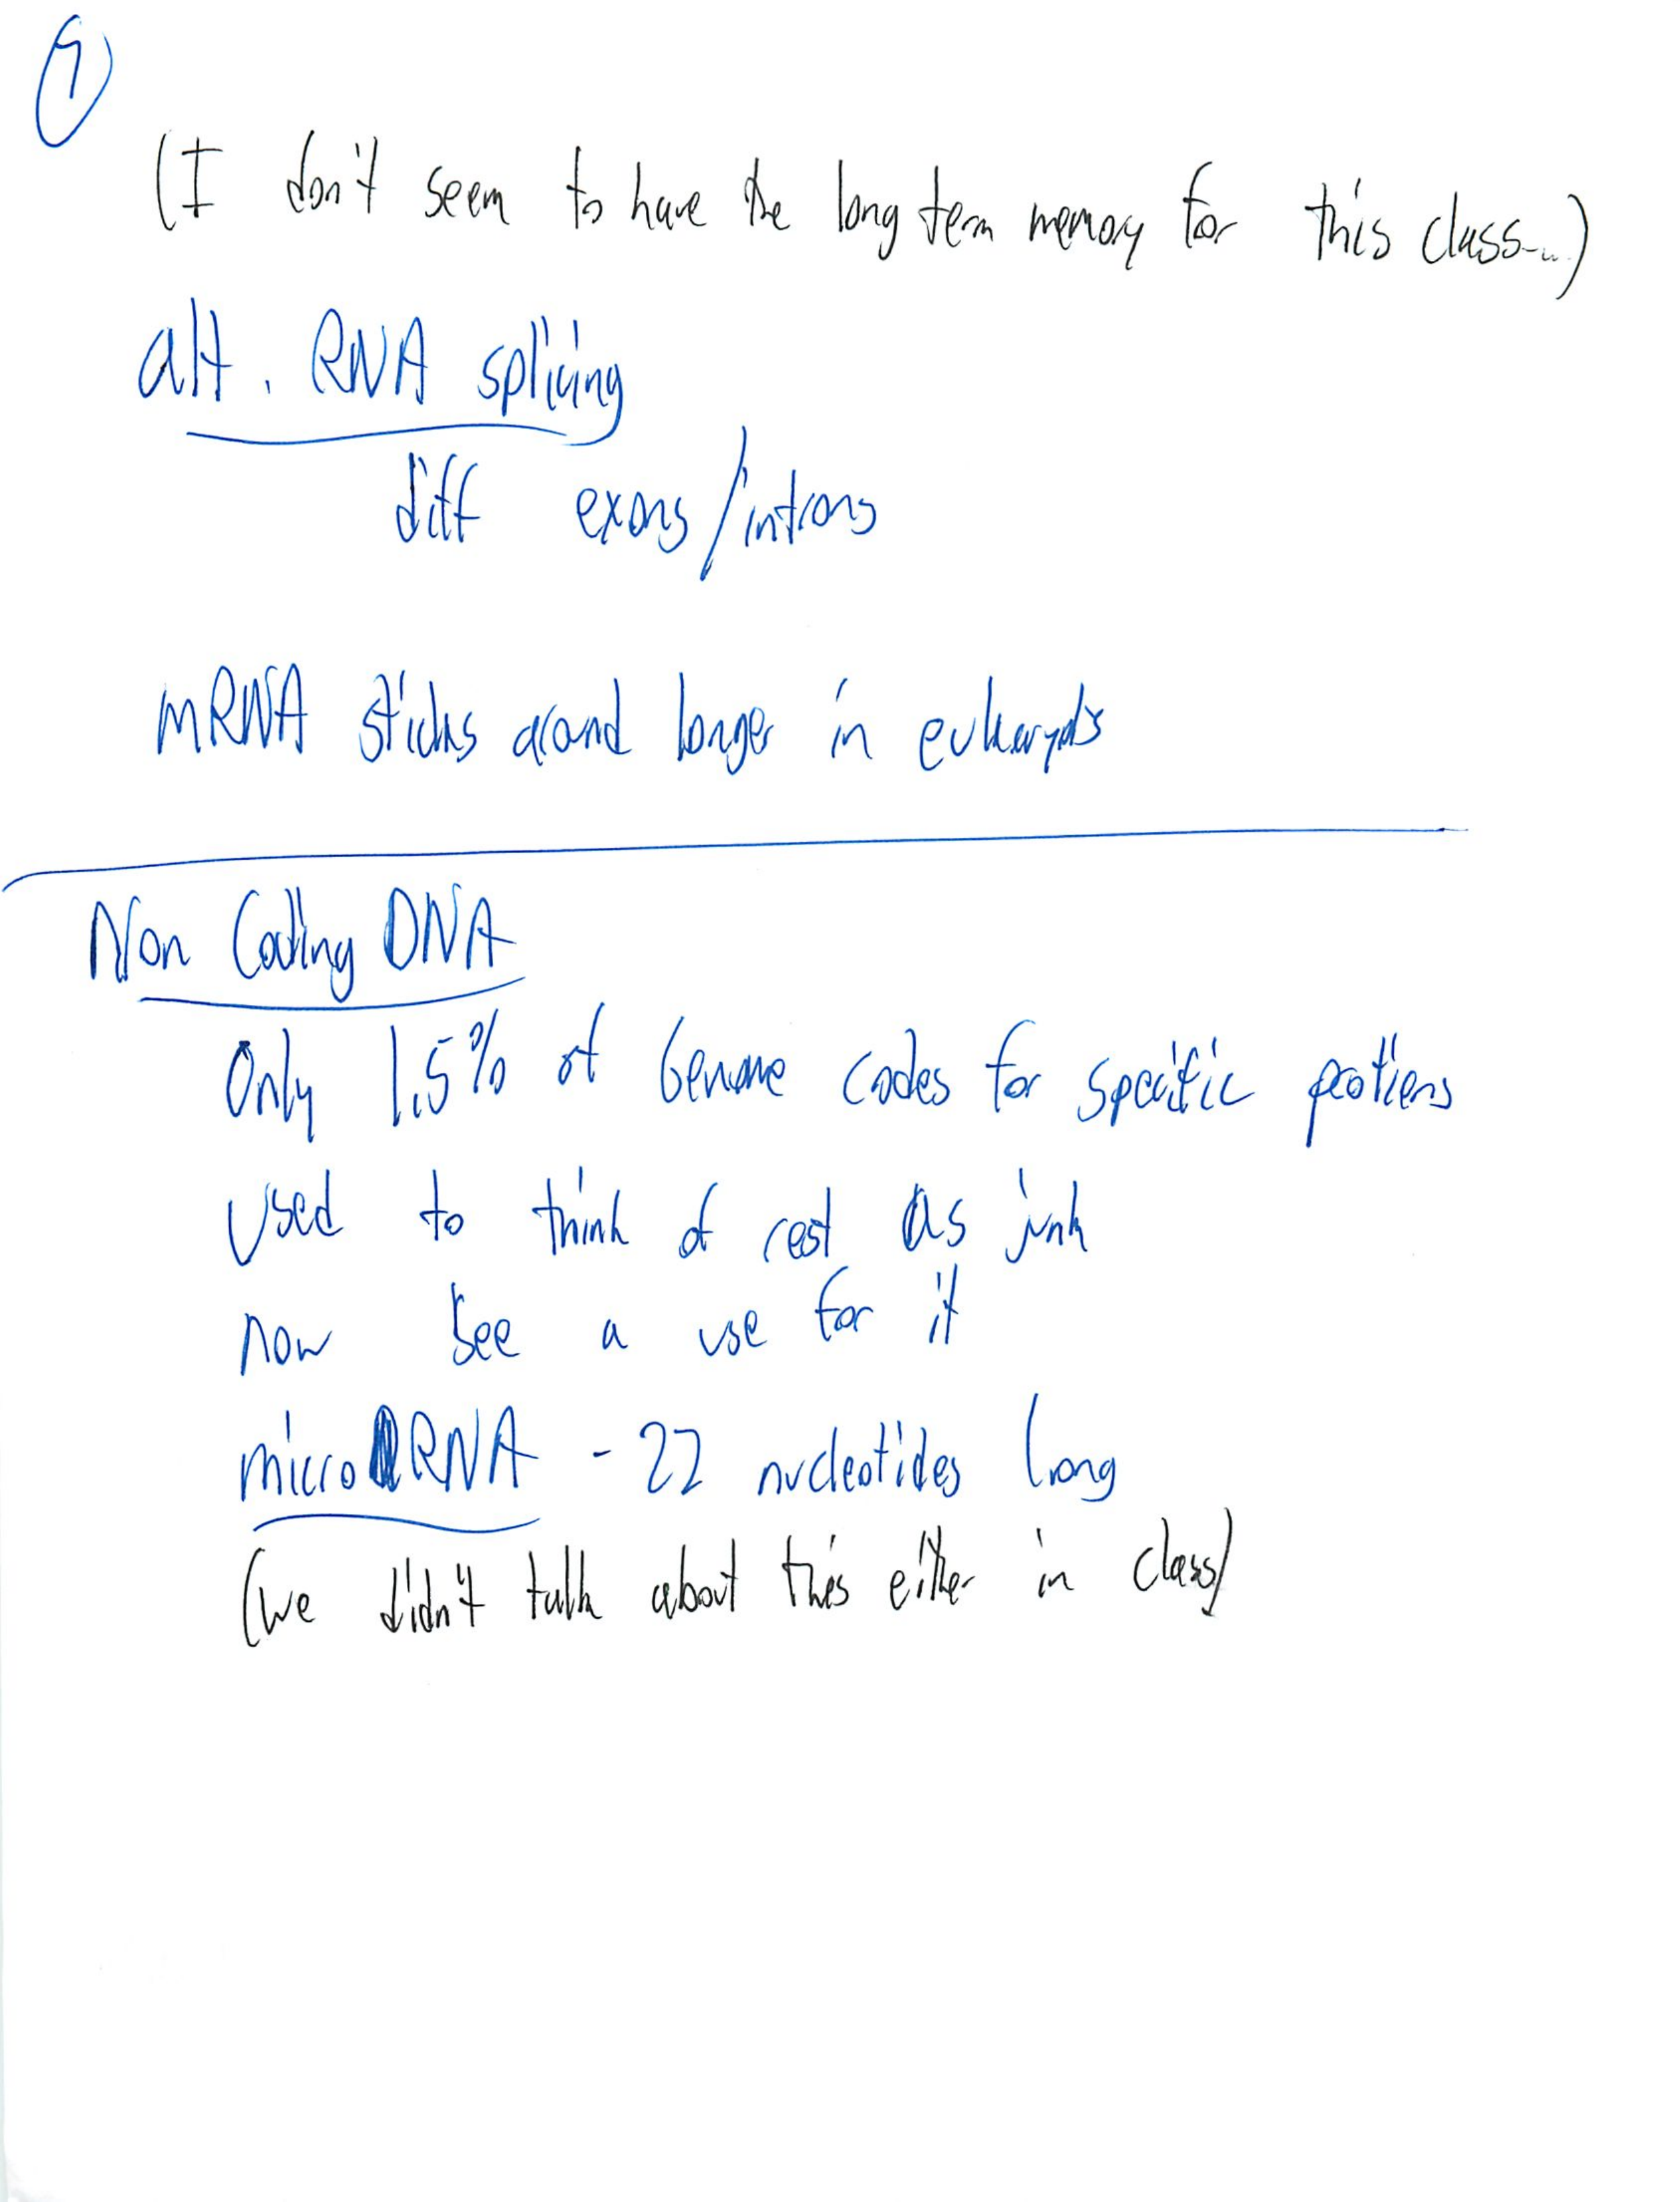 9
(I don't seem to have the long term memory for this class...)
alt. RNA splicing
diff exons/introns
mRNA sticks around longer in eukaryots
Non Coding DNA
Only 1.5% of Genome codes for specific protiens
Used to think of rest as junk
now see a use for it
micro RNA - 22 nucleotides long
(we didn't talk about this either in class)